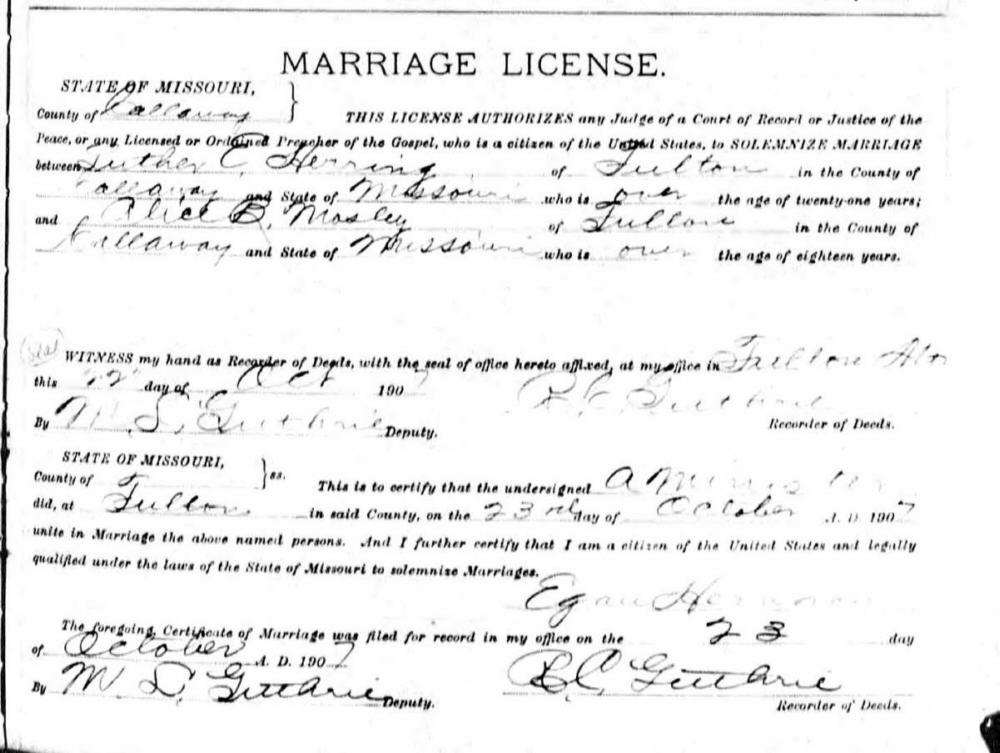 MARRIAGE LICENSE.
STATE OF MISSOURI,
County of Callaway
THIS LICENSE AUTHORIZES any Judge of a Court of Record or Justice of the
Peace, or any Licensed or Ordained Preacher of the Gospel, who is a citizen of the United States, to SOLEMNIZE MARRIAGE
between Luther C. Herring of Fulton in the County of
Callaway and State of Missouri who is over the age of twenty-one years;
and Alice B. Mosley of Fulton in the County of
Callaway and State of Missouri who is over the age of eighteen years.
WITNESS my hand as Recorder of Deeds, with the seal of office hereto affixed, at my office in Fulton Mo
this 22" day of Oct 1907 R. C. Guthrie
By M. D. Guthrie Deputy. Recorder of Deeds.
STATE OF MISSOURI,
County of } ss. This is to certify that the undersigned A Minister
did, at Fulton in said County, on the 23rd day of October A. D. 1907
unite in Marriage the above named persons. And I further certify that I am a citizen of the United States and legally
qualified under the laws of the State of Missouri to solemnize Marriages.
The foregoing Certificate of Marriage was filed for record in my office on the 23 day
of October A. D. 1907
By M. D. Guthrie Deputy. R. C. Guthrie
Recorder of Deeds.